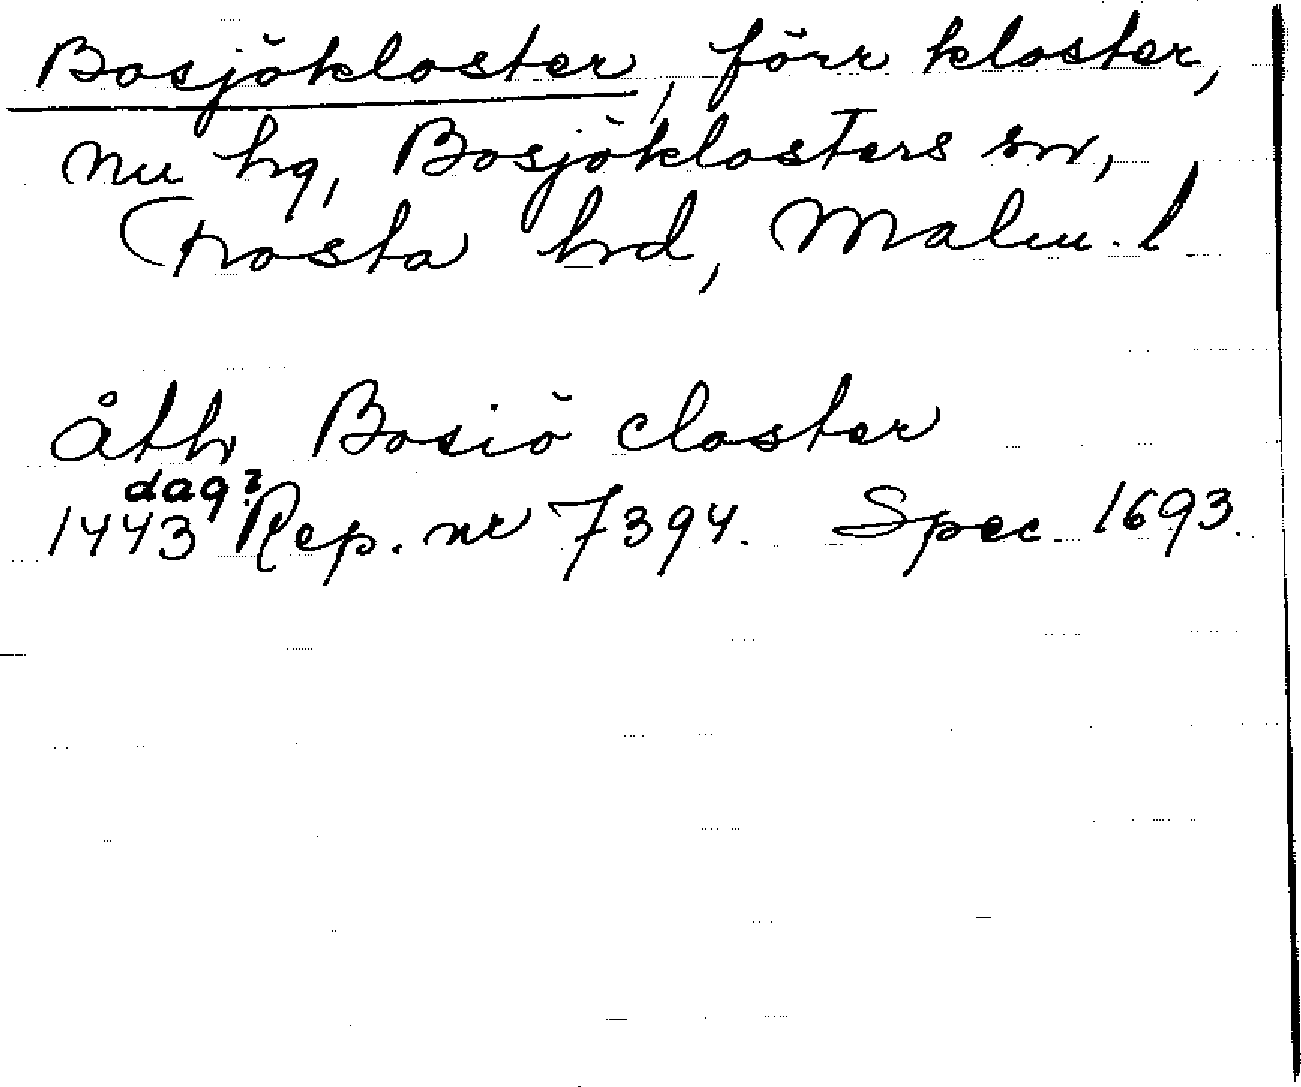 Bosjökloster, förr kloster,
nu hg, Bosjöklosters sn,
Frosta hrd, Malm. l
åth Bosiö closter
dag?
1443 Rep. nr 7394. Spec 1693.